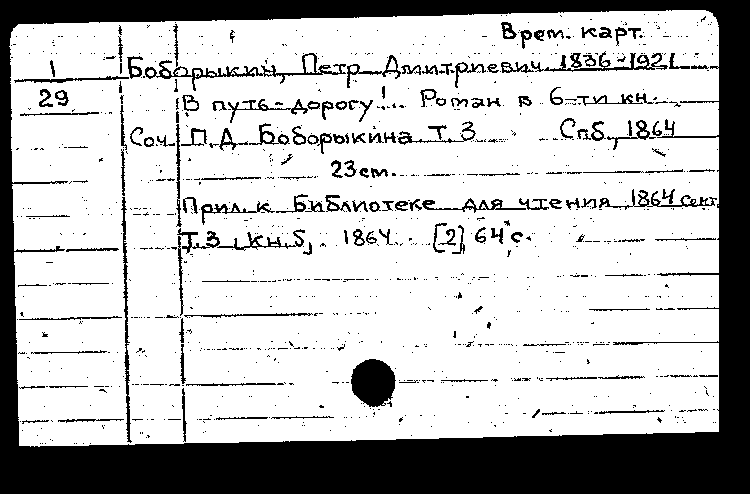 Врем. карт.
1 Боборыкин, Петр Дмитриевич. 1836-1921
29 В путь-дорогу!.. Роман в 6-ти кн.
Соч. П.Д. Боборыкина Т. 3 Спб., 1864
23 см.
Прил. к Библиотеке для чтения 1864 сент.
Т. 3 [кн. 5]. 1864. [2], 64 с.